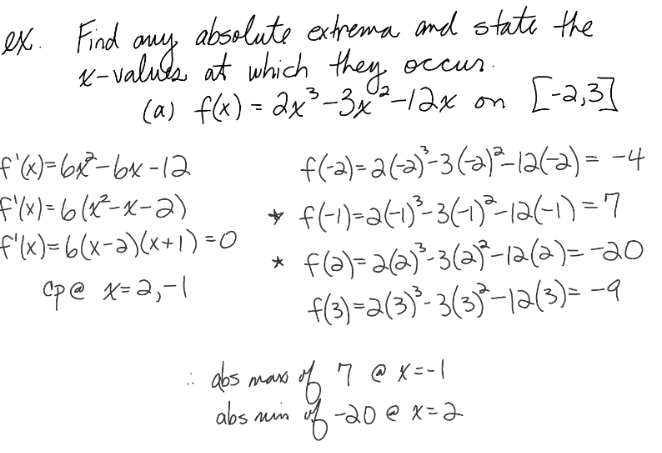 ex. Find any absolute extrema and state the
x-values at which they occur.
(a) f(x) = 2x³-3x²-12x on [-2,3]
f'(x)=6x²-6x-12
f'(x)=6(x²-x-2)
f'(x)=6(x-2)(x+1)=0
cp @ x=2,-1
f(-2)=2(-2)³-3(-2)²-12(-2)= -4
* f(-1)=2(-1)³-3(-1)²-12(-1)=7
* f(2)=2(2)³-3(2)²-12(2)=-20
f(3)=2(3)³-3(3)²-12(3)= -9
∴ abs max of 7 @ x=-1
abs min of -20 @ x=2